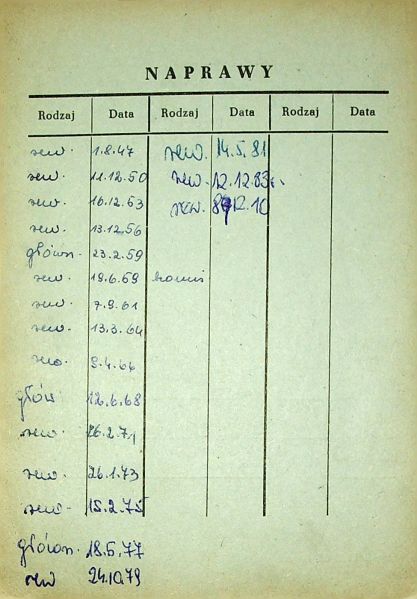 NAPRAWY
Rodzaj Data Rodzaj Data Rodzaj Data
rew. 1.8.47 rew. 14.5.81
rew. 11.12.50 rew. 12.12.83r.
rew. 16.12.53 rew. 12.10
rew. 13.12.56
główn. 23.2.59
rew. 19.6.59
rew. 7.9.61
rew. 13.3.64
rew. 5.4.66
głów 12.6.68
rew. 26.2.71
rew. 26.1.73
rew. 15.2.75
główn. 18.5.77
rew 24.10.79